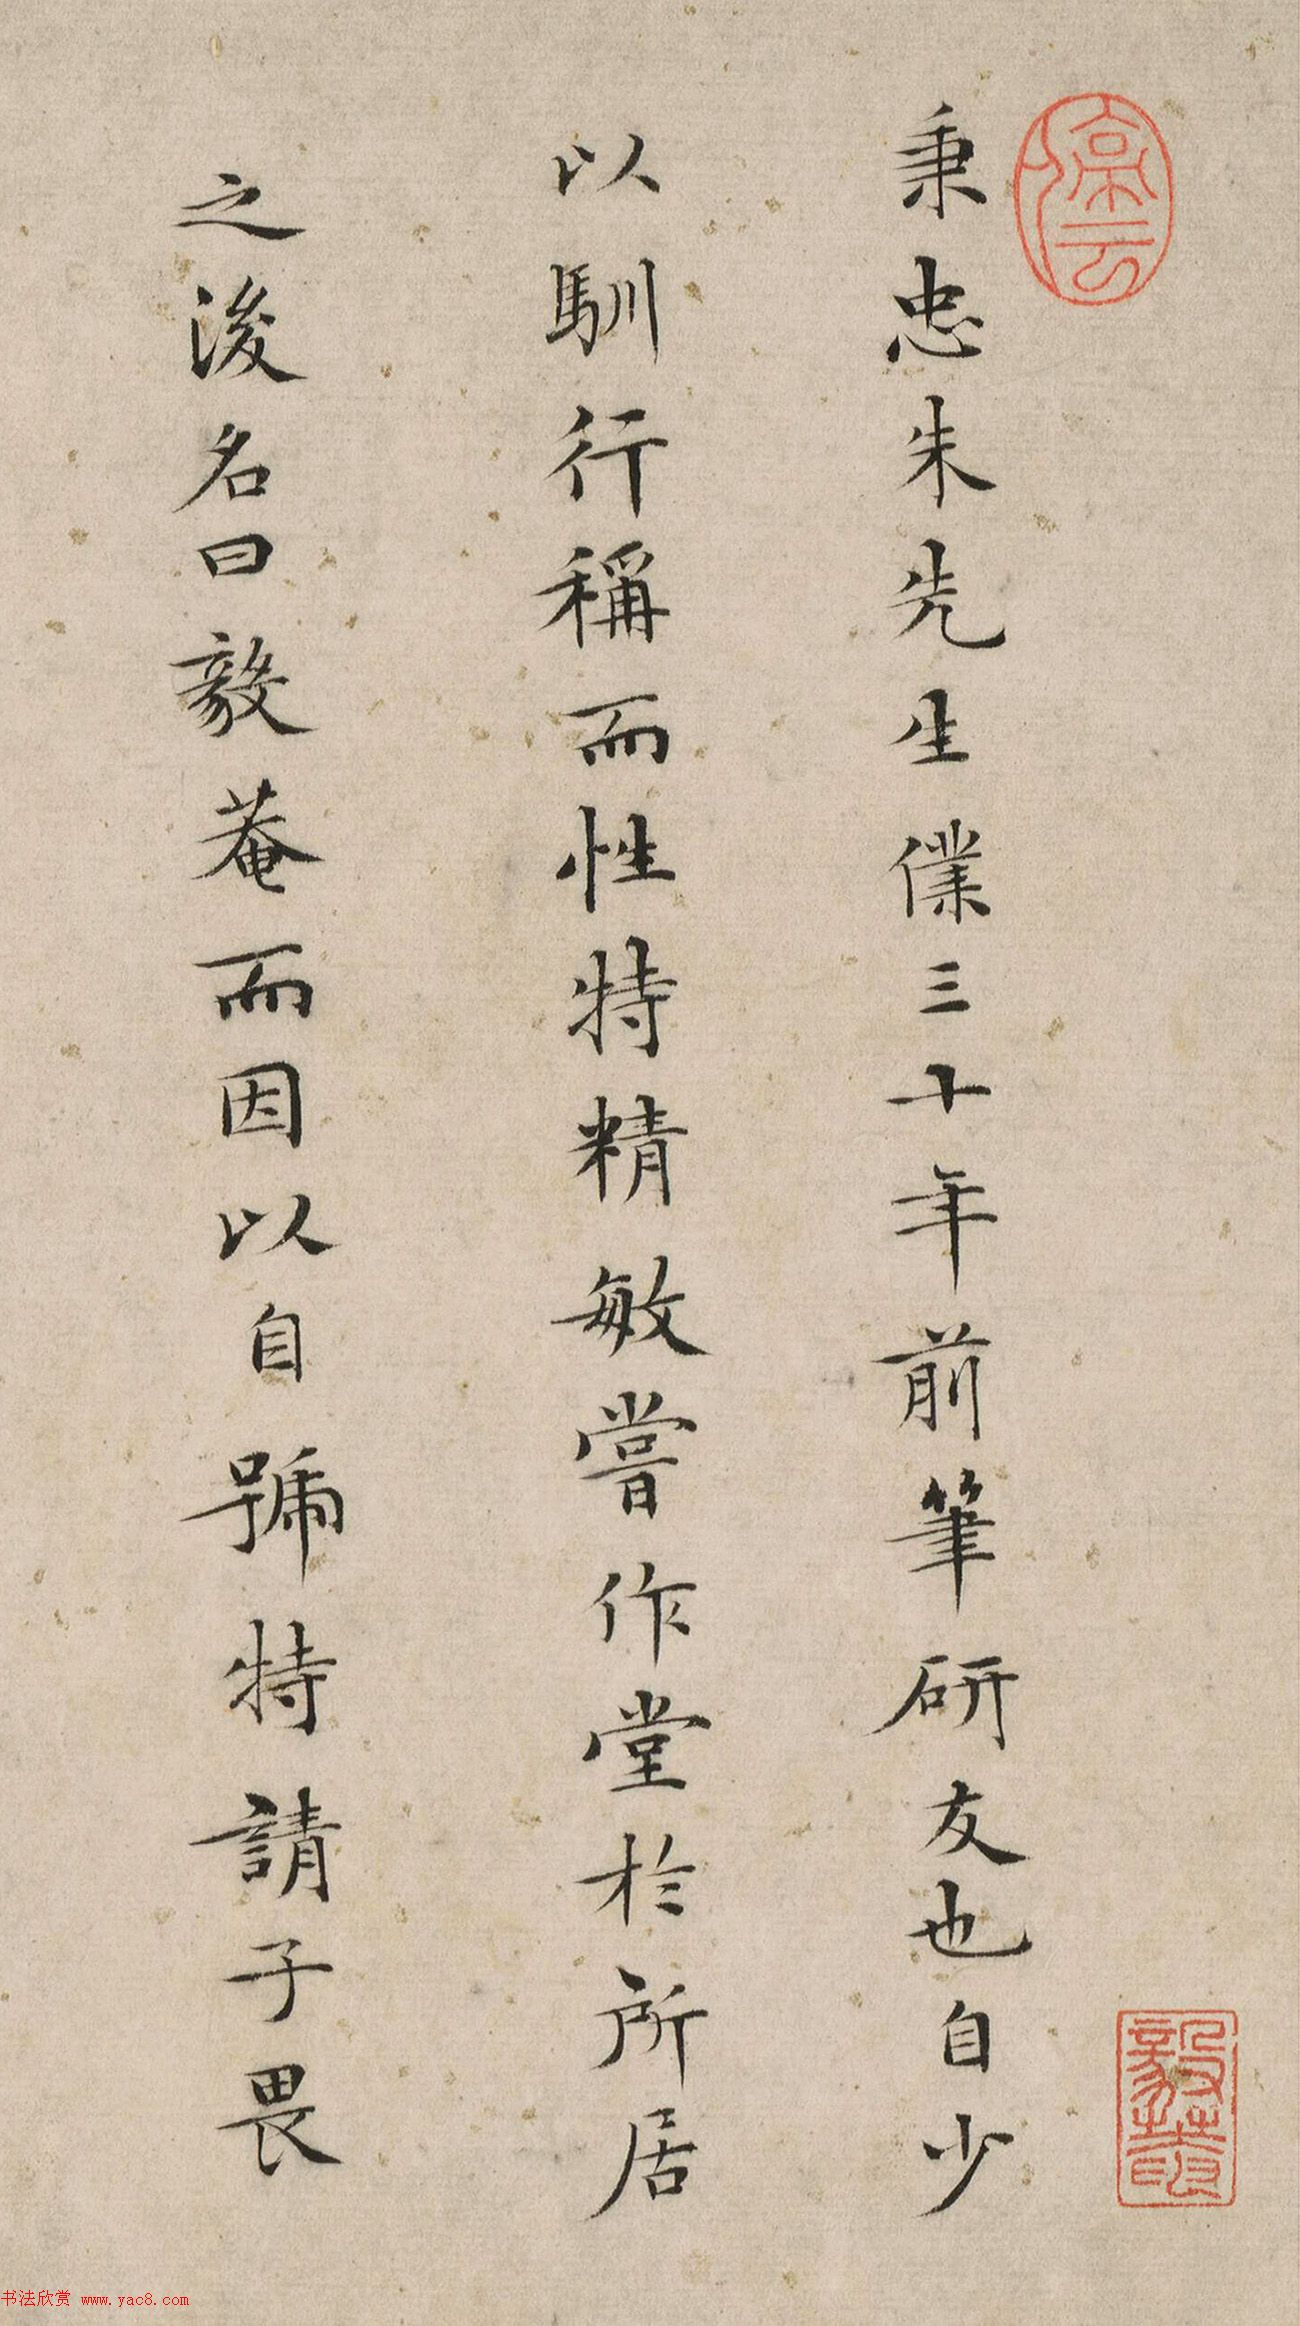 秉忠朱先生僕三十年前筆研友也自少
以馴行稱而性特精敏嘗作堂於所居
之後名曰毅菴而因以自號特請子畏
停云
书法欣赏 www.yac8.com